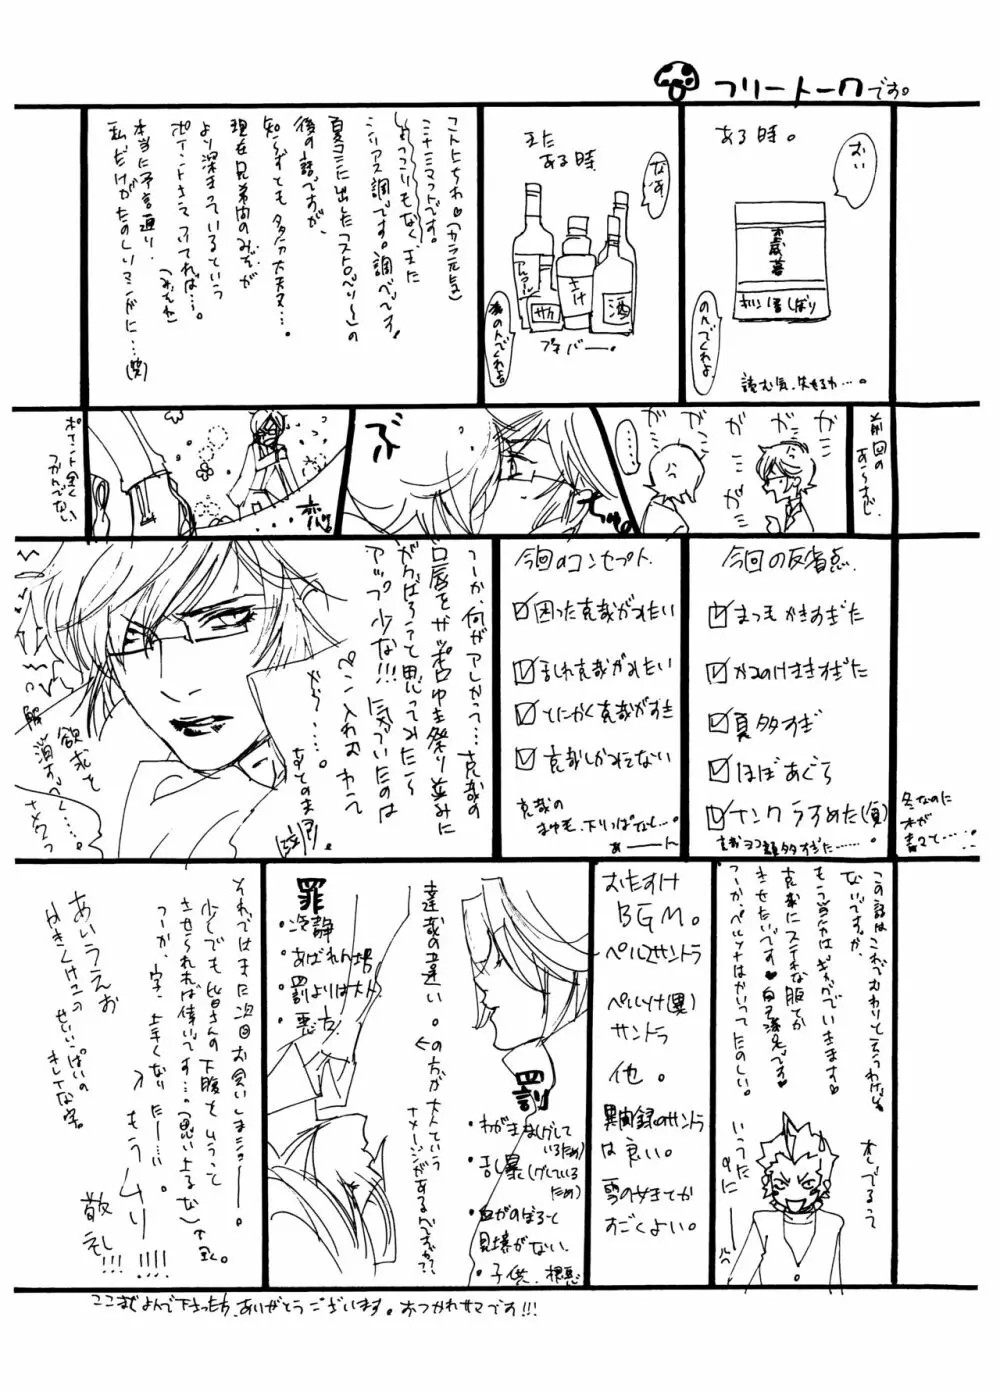 フリートークです。
ある時。
おい
お歳暮
のんでくれよ
読む気、失せるわ…。
また
ある時
なあ
アルコール
サケ
さけ
酒
プチバー。
コンニチわ♥(カラ元気)
ミナミマコトです。
しょっこりもなく、また
シリアス調です。調べてす。
夏コミに出した「ストロベリー」の
後の話ですが、
知らずとも多分大丈夫…。
現在兄弟間のみぞが
より深まっているという
ポイントさえついてれば…。
本当に予言通り、
私だけがたのしいマンガに…(笑)
前回の
あらすじ
ガ
ガ
ガ
ガ
……
ぶ
恋
ポイント全く
つかんでない
今回の反省点
まつ毛かきすぎた
かみのけさきすぎた
夏多すぎ
ほぼあぐら
冬なのに
木が
今回のコンセプト
困った克哉がみたい
乱れ克哉がみたい
とにかく克哉がすき
克哉しかみてない
克哉の
まゆ毛、下りっぱなし…。
あーーー
つーか、何がアレかって…克哉の
口唇をサッポロゆき祭り並みに
がんばろうって思ってみたら
アップ少な!!!気づいたのは
ペン入れおわって
から……。
あとのまつり
(泣)
欲求を
解消すべく…
この話はこれでおわりというわけでも
ないですが、
もう当分はギャグでいきます♥
克哉にステキな服とか
きせたいです♥自己満足です♥
つーか、ペルソナはかいててたのしい。
オレでるって
いうつた
のに
おすすけ
BGM。
ペル2サントラ
ペルソナ(異)
サントラ
他。
異聞録のサントラ
は良い。
雪の女王とか
すごくよい。
達哉の違い。
←の方が大人ていう
イメージがあるんですが??
罪
・冷静
・あばれん坊
・罰よりは大人
・悪友
罰
・わがまま(げしてい
いるため)
・乱暴(げしている
ため)
・血がのぼると
見境がない
・子供、根暗
それではまた次回お会いしましょーーー。
少しでも皆さんの下腹をいって
させられれば倖いです…。(思い上るな)
つーか、字、上手くなりたーーい…
もうムリ!!!!
敬礼!!!
あいうえお
かきくけこの
せいいっぱいの
キレイな字。
ここまでよんで下さった方、ありがとうございます。おつかれサマです!!!